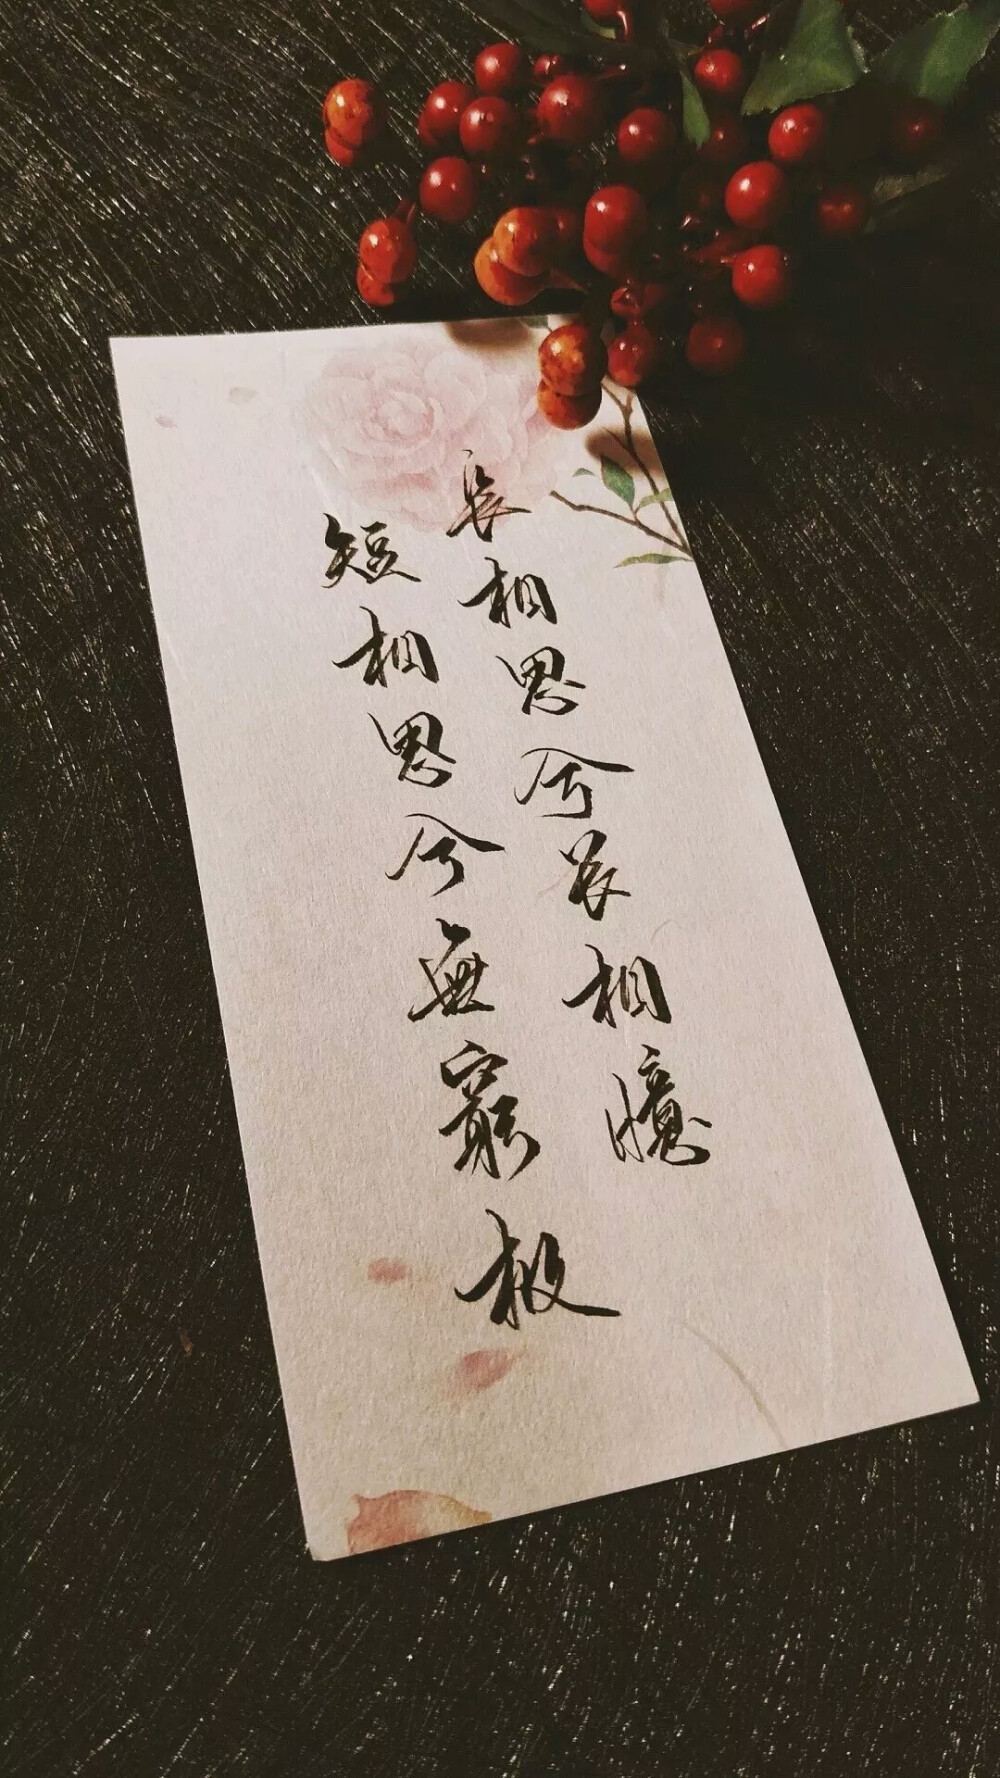 長相思兮長相憶
短相思兮無窮極